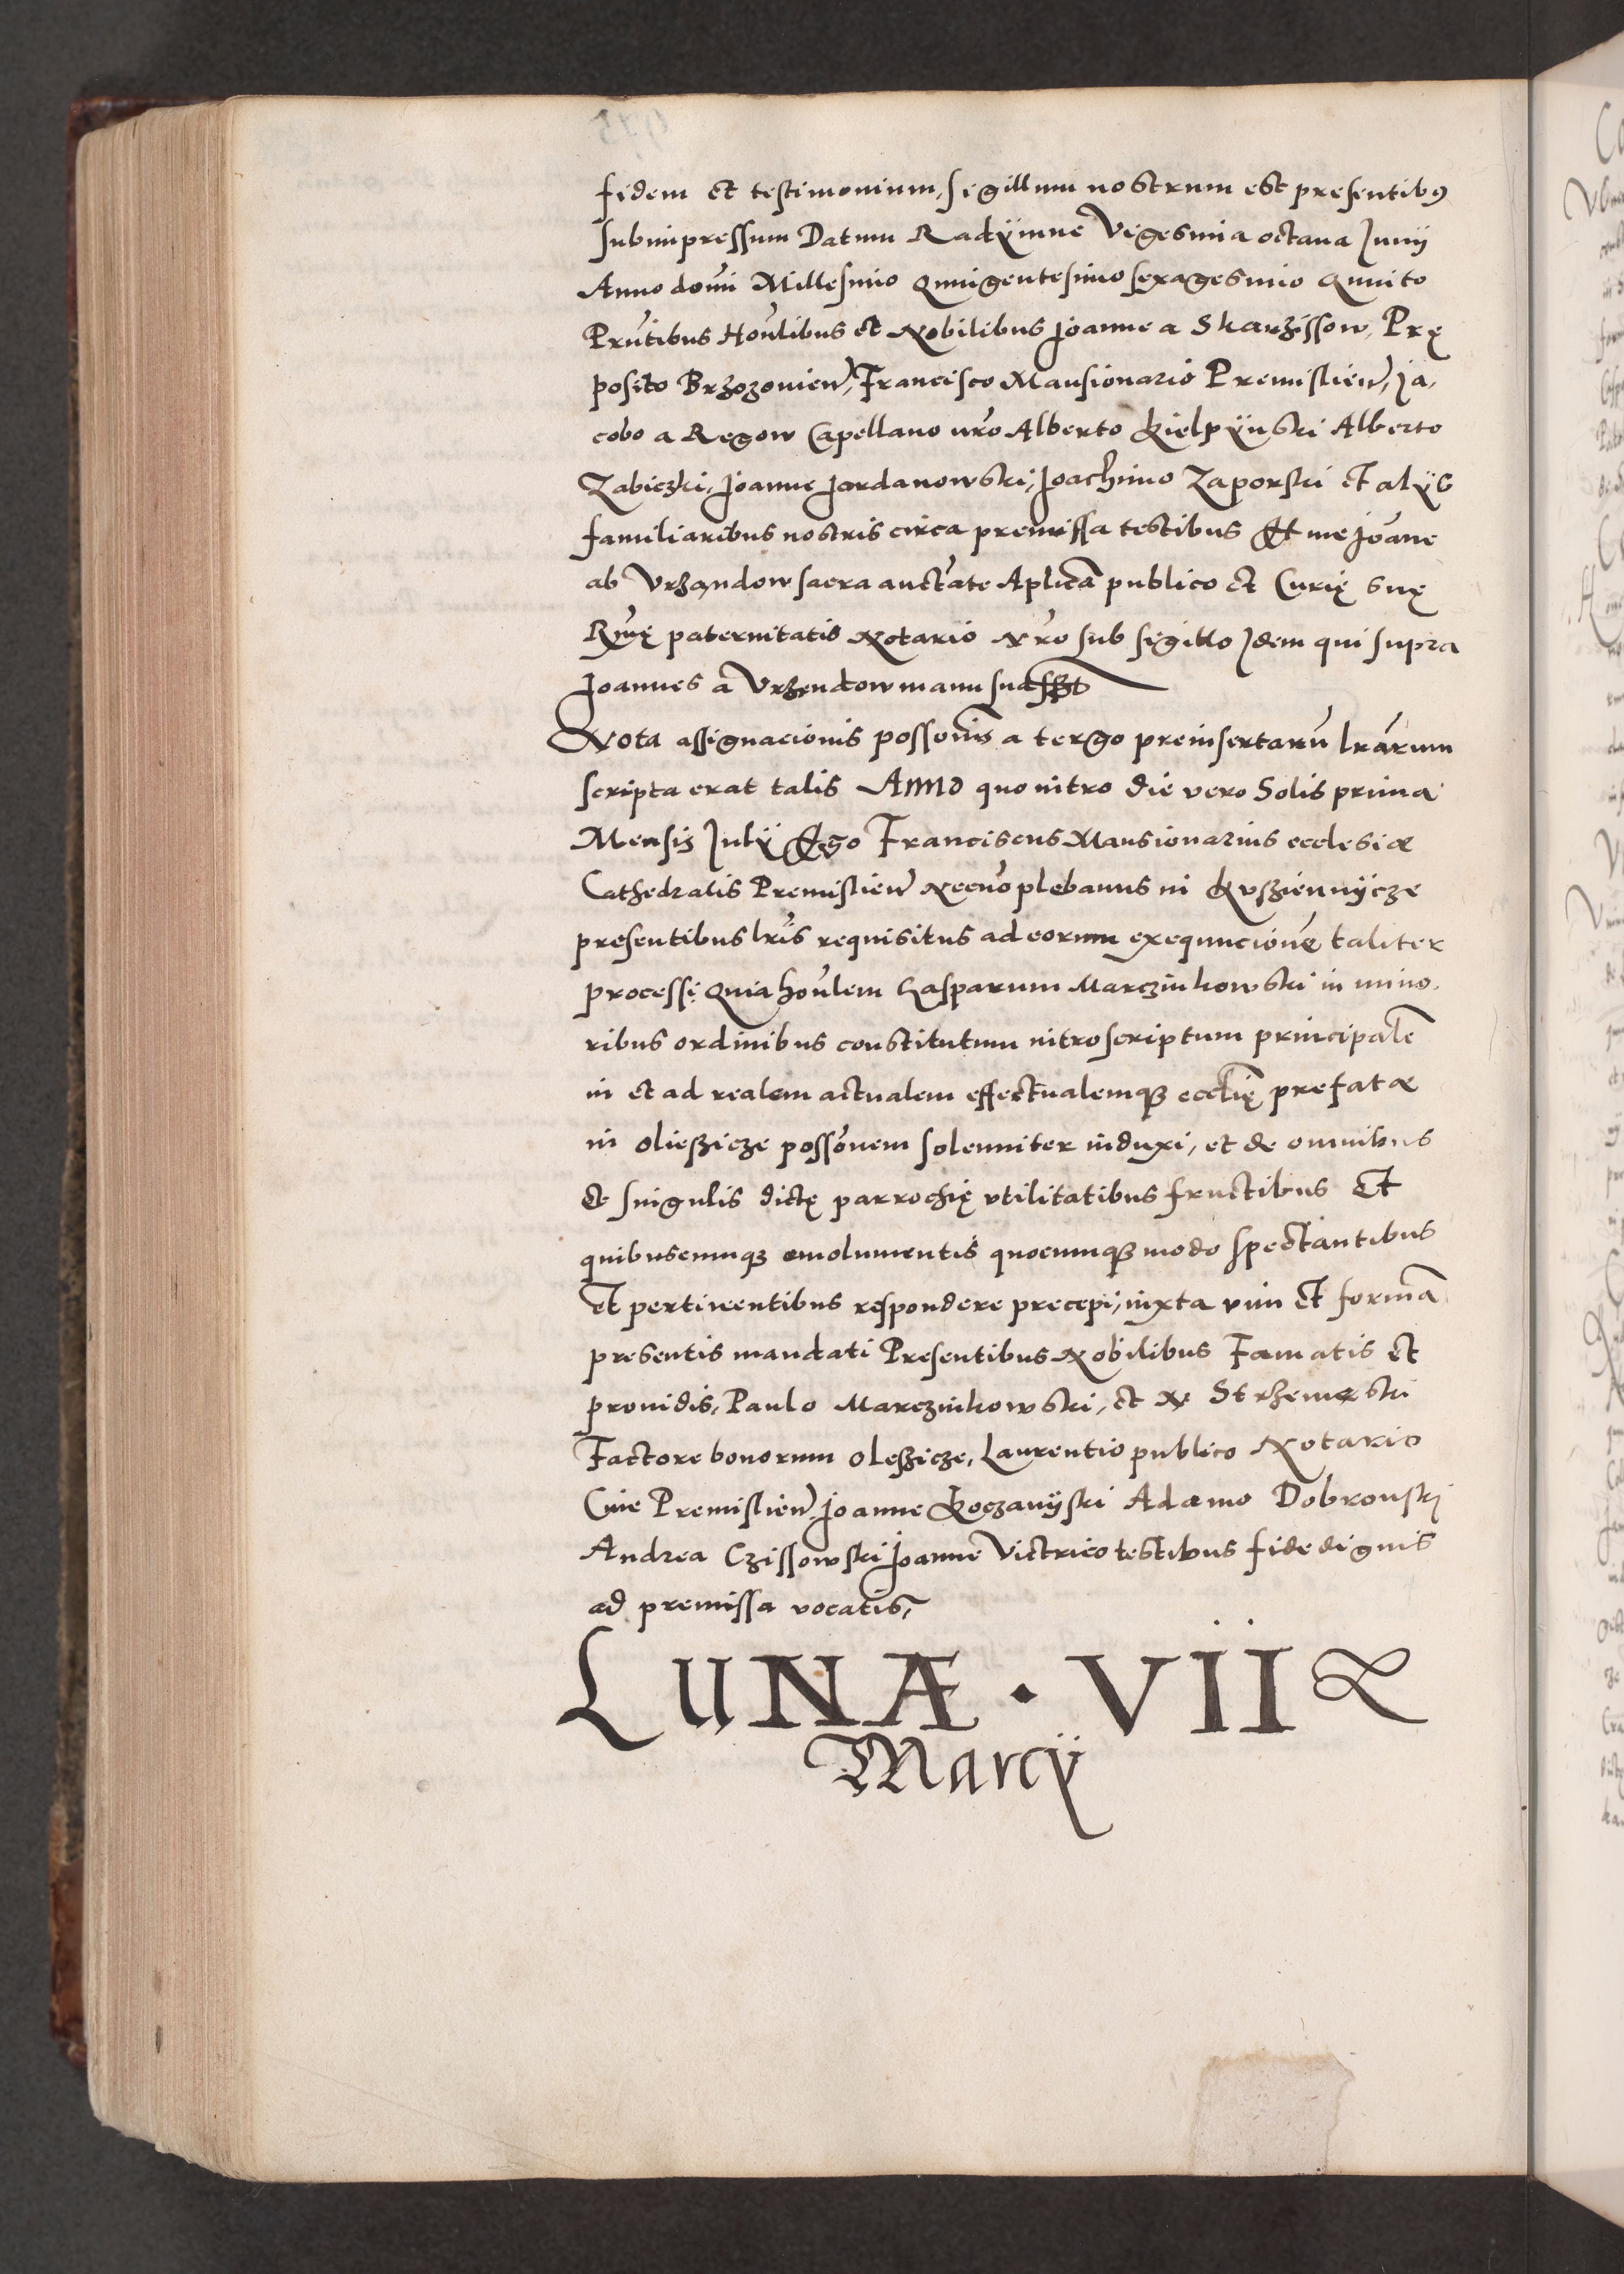 fidem et testimonium, sigillum nostrum est presentibꝯ
subimpressum Datum Radÿmne Vigesima octaua Junij
Anno domĩ Millesimo Quingentesimo sexagesimo Quinto
Prñtibus Hoñlibus et Nobilibus Joanne a Skarzissow, Prę
posito Brzozouieñ, Francisco Mansionario Premislieñ, Ja,
cobo a Regow Capellano nr̃o Alberto Kielpÿnski Alberto
Zabiczki, Joanne Jordanowski, Joachimo Zaporski et alÿs
familiaribus nostris circa premissa testibus Et me Joãne
ab Vrzandow sacra auctãte Aplicã publico et Curię suę
Rm̃ę paternitatis Notario Nr̃o sub sigillo Idem qui supra
Joannes a Vrzendow manu sua sszt
Nota assignacionis possonĩs a tergo preinsertarũ lrãrum
scripta erat talis Anno quo intro die vero Solis prima
Mensis Julÿ Ego Franciscus Mansionarius ecclesiæ
Cathedralis Premislieñ Necnõ plebanus in Kvsziennÿcze
presentibus lrĩs requisitus ad eorum exequucionẽ taliter
processi Quia hoñlem Casparum Marczinkowski in mino,
ribus ordinibus constitutum introscriptum principalẽ
in et ad realem actualem effectualemqꝫ eccl̃ię prefatæ
in Olieszicze possõnem solenniter induxi, et de omnibus
et singulis dictę parrochię vtilitatibus fructibus Et
quibuscumqꝫ emolumentis quocumqꝫ modo spectantibus
et pertinentibus respondere precepi, iuxta vim Et formã
presentis mandati Presentibus Nobilibus Famatis et
prouidis, Paulo Marczinkowski, et N Strzemeski
Factore bonorum Oleszicze, Laurentio publico Notario
Ciue Premislieñ Joanne Koczanÿski Adamo Dobrouski
Andrea Czissowski Joanne Victrico testibus fide dignis
ad premissa vocatis,
LUNÆ · VII
Marcÿ